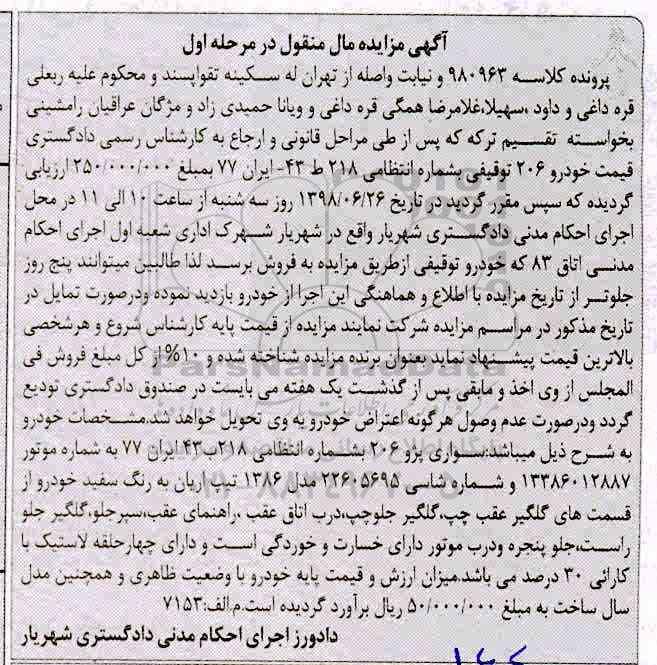 آگهی مزایده مال منقول در مرحله اول
پرونده کلاسه ۹۸۰۹۶۳ و نیابت واصله از تهران له سکینه تقواپسند و محکوم علیه ربعلی
قره داغی و داود ،سهیلا،غلامرضا همگی قره داغی و ویانا حمیدی زاد و مژگان عراقیان رامشینی
بخواسته تقسیم ترکه که پس از طی مراحل قانونی و ارجاع به کارشناس رسمی دادگستری
قیمت خودرو ۲۰۶ توقیفی بشماره انتظامی ۲۱۸ ط ۴۳- ایران ۷۷ بمبلغ ۲۵۰/۰۰۰/۰۰۰ ارزیابی
گردیده که سپس مقرر گردید در تاریخ ۱۳۹۸/۰۶/۲۶ روز سه شنبه از ساعت ۱۰ الی ۱۱ در محل
اجرای احکام مدنی دادگستری شهریار واقع در شهریار شهرک اداری شعبه اول اجرای احکام
مدنی اتاق ۸۳ که خودرو توقیفی ازطریق مزایده به فروش برسد لذا طالبین میتوانند پنج روز
جلوتر از تاریخ مزایده با اطلاع و هماهنگی این اجرا از خودرو بازدید نموده ودرصورت تمایل در
تاریخ مذکور در مراسم مزایده شرکت نمایند مزایده از قیمت پایه کارشناس شروع و هرشخصی
بالاترین قیمت پیشنهاد نماید بعنوان برنده مزایده شناخته شده و ۱۰% از کل مبلغ فروش فی
المجلس از وی اخذ و مابقی پس از گذشت یک هفته می بایست در صندوق دادگستری تودیع
گردد ودرصورت عدم وصول هرگونه اعتراض خودرو به وی تحویل خواهد شد.مشخصات خودرو
به شرح ذیل میباشد:سواری پژو ۲۰۶ بشماره انتظامی ۲۱۸ب۴۳ ایران ۷۷ به شماره موتور
۱۳۳۸۶۰۱۲۸۸۷ و شماره شاسی ۲۲۶۰۵۶۹۵ مدل ۱۳۸۶ تیپ اریان به رنگ سفید خودرو از
قسمت های گلگیر عقب چپ،گلگیر جلوچپ،درب اتاق عقب ،راهنمای عقب،سپرجلو،گلگیر جلو
راست،جلو پنجره ودرب موتور دارای خسارت و خوردگی است و دارای چهارحلقه لاستیک با
کارائی ۳۰ درصد می باشد.میزان ارزش و قیمت پایه خودرو با وضعیت ظاهری و همچنین مدل
سال ساخت به مبلغ ۵۰/۰۰۰/۰۰۰ ریال برآورد گردیده است.م.الف:۷۱۵۳
دادورز اجرای احکام مدنی دادگستری شهریار
ParsNamadData